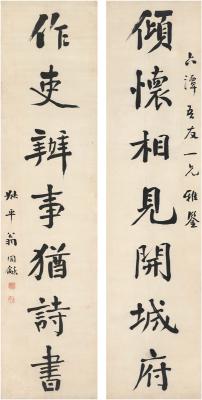 六潭吾友一兄雅鑒
傾懷相見開城府
作吏辦事猶詩書
叔平翁同龢